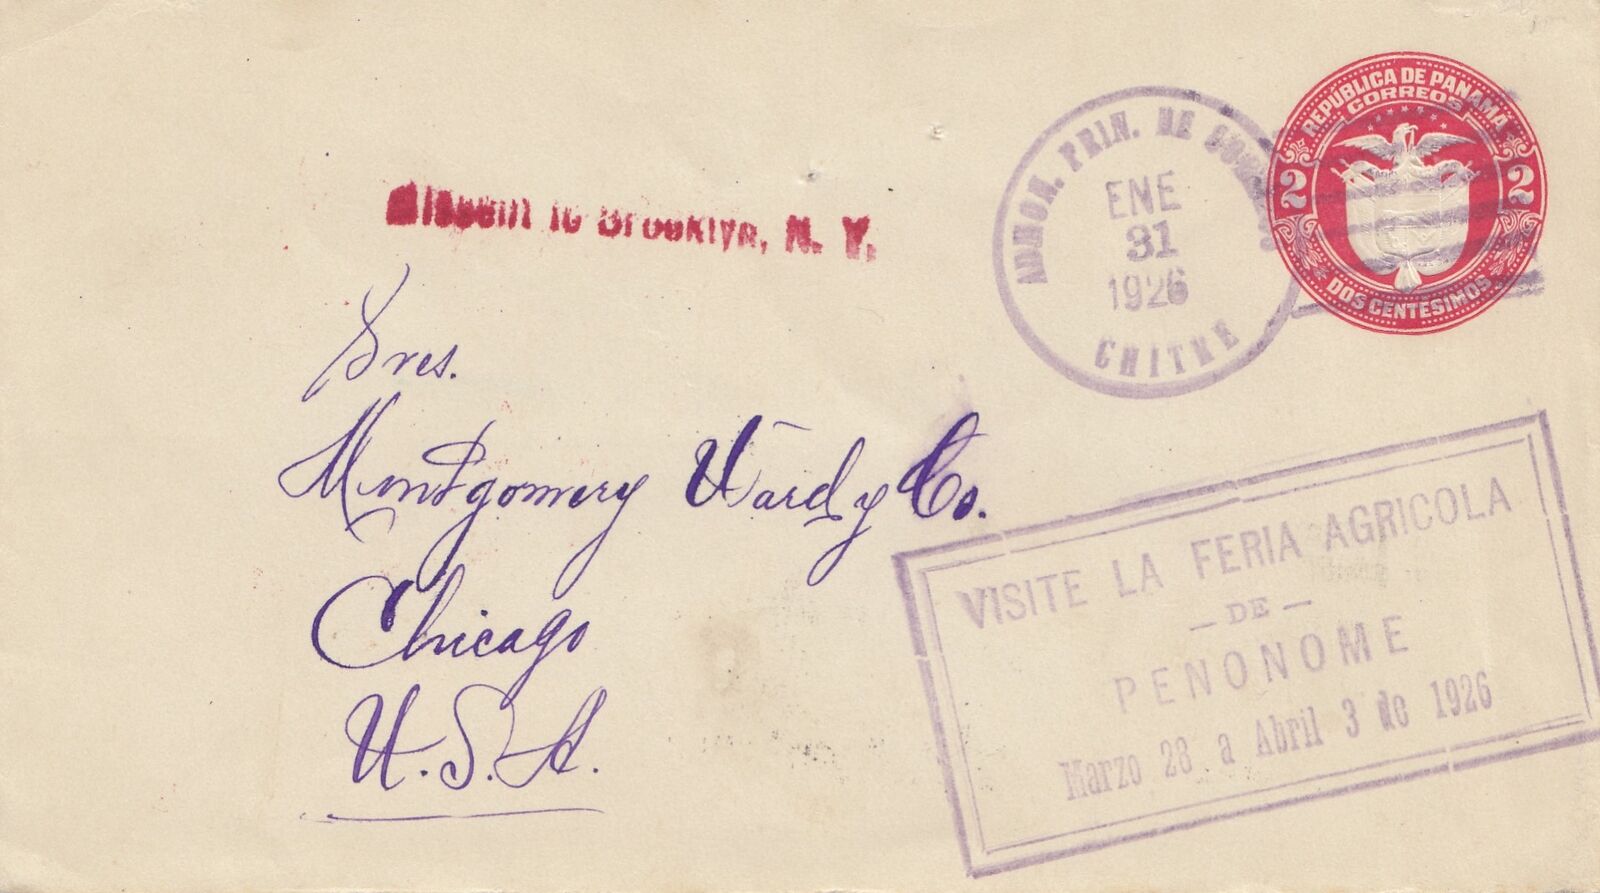 REPUBLICA DE PANAMA
CORREOS
2 2
DOS CENTESIMOS
ADMON. PRIN. DE CORREOS
ENE
31
1926
CHITRE
Missent to Brooklyn, N. Y.
Sres.
Montgomery Ward y Co.
Chicago
U.S.A.
VISITE LA FERIA AGRICOLA
— DE —
PENONOME
Marzo 28 a Abril 3 de 1926